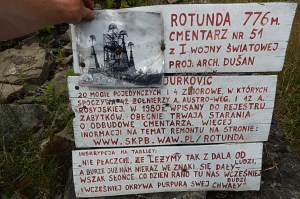 ROTUNDA 776 m.
CMENTARZ NR 51
Z I WOJNY ŚWIATOWEJ
PROJ. ARCH. DUŠAN
JURKOVIČ
20 MOGIŁ POJEDYNCZYCH I 4 ZBIOROWE, W KTÓRYCH
SPOCZYWA 42 ŻOŁNIERZY A. AUSTRO-WĘG. I 12 A.
ROSYJSKIEJ. W 1980 R. WPISANY DO REJESTRU
ZABYTKÓW, OBECNIE TRWAJĄ STARANIA
O ODBUDOWĘ CMENTARZA. WIĘCEJ
INFORMACJI NA TEMAT REMONTU NA STRONIE:
WWW.SKPB.WAW.PL/ROTUNDA
INSKRYPCJA NA TABLICY:
"NIE PŁACZCIE, ŻE LEŻYMY TAK Z DALA OD
LUDZI,
A BURZE JUŻ NAM NIERAZ WE ZNAKI SIĘ DAŁY-
WSZAK SŁOŃCE CO DZIEŃ RANO TU NAS WCZEŚNIEJ
BUDZI
I WCZEŚNIEJ OKRYWA PURPURĄ SWEJ CHWAŁY"